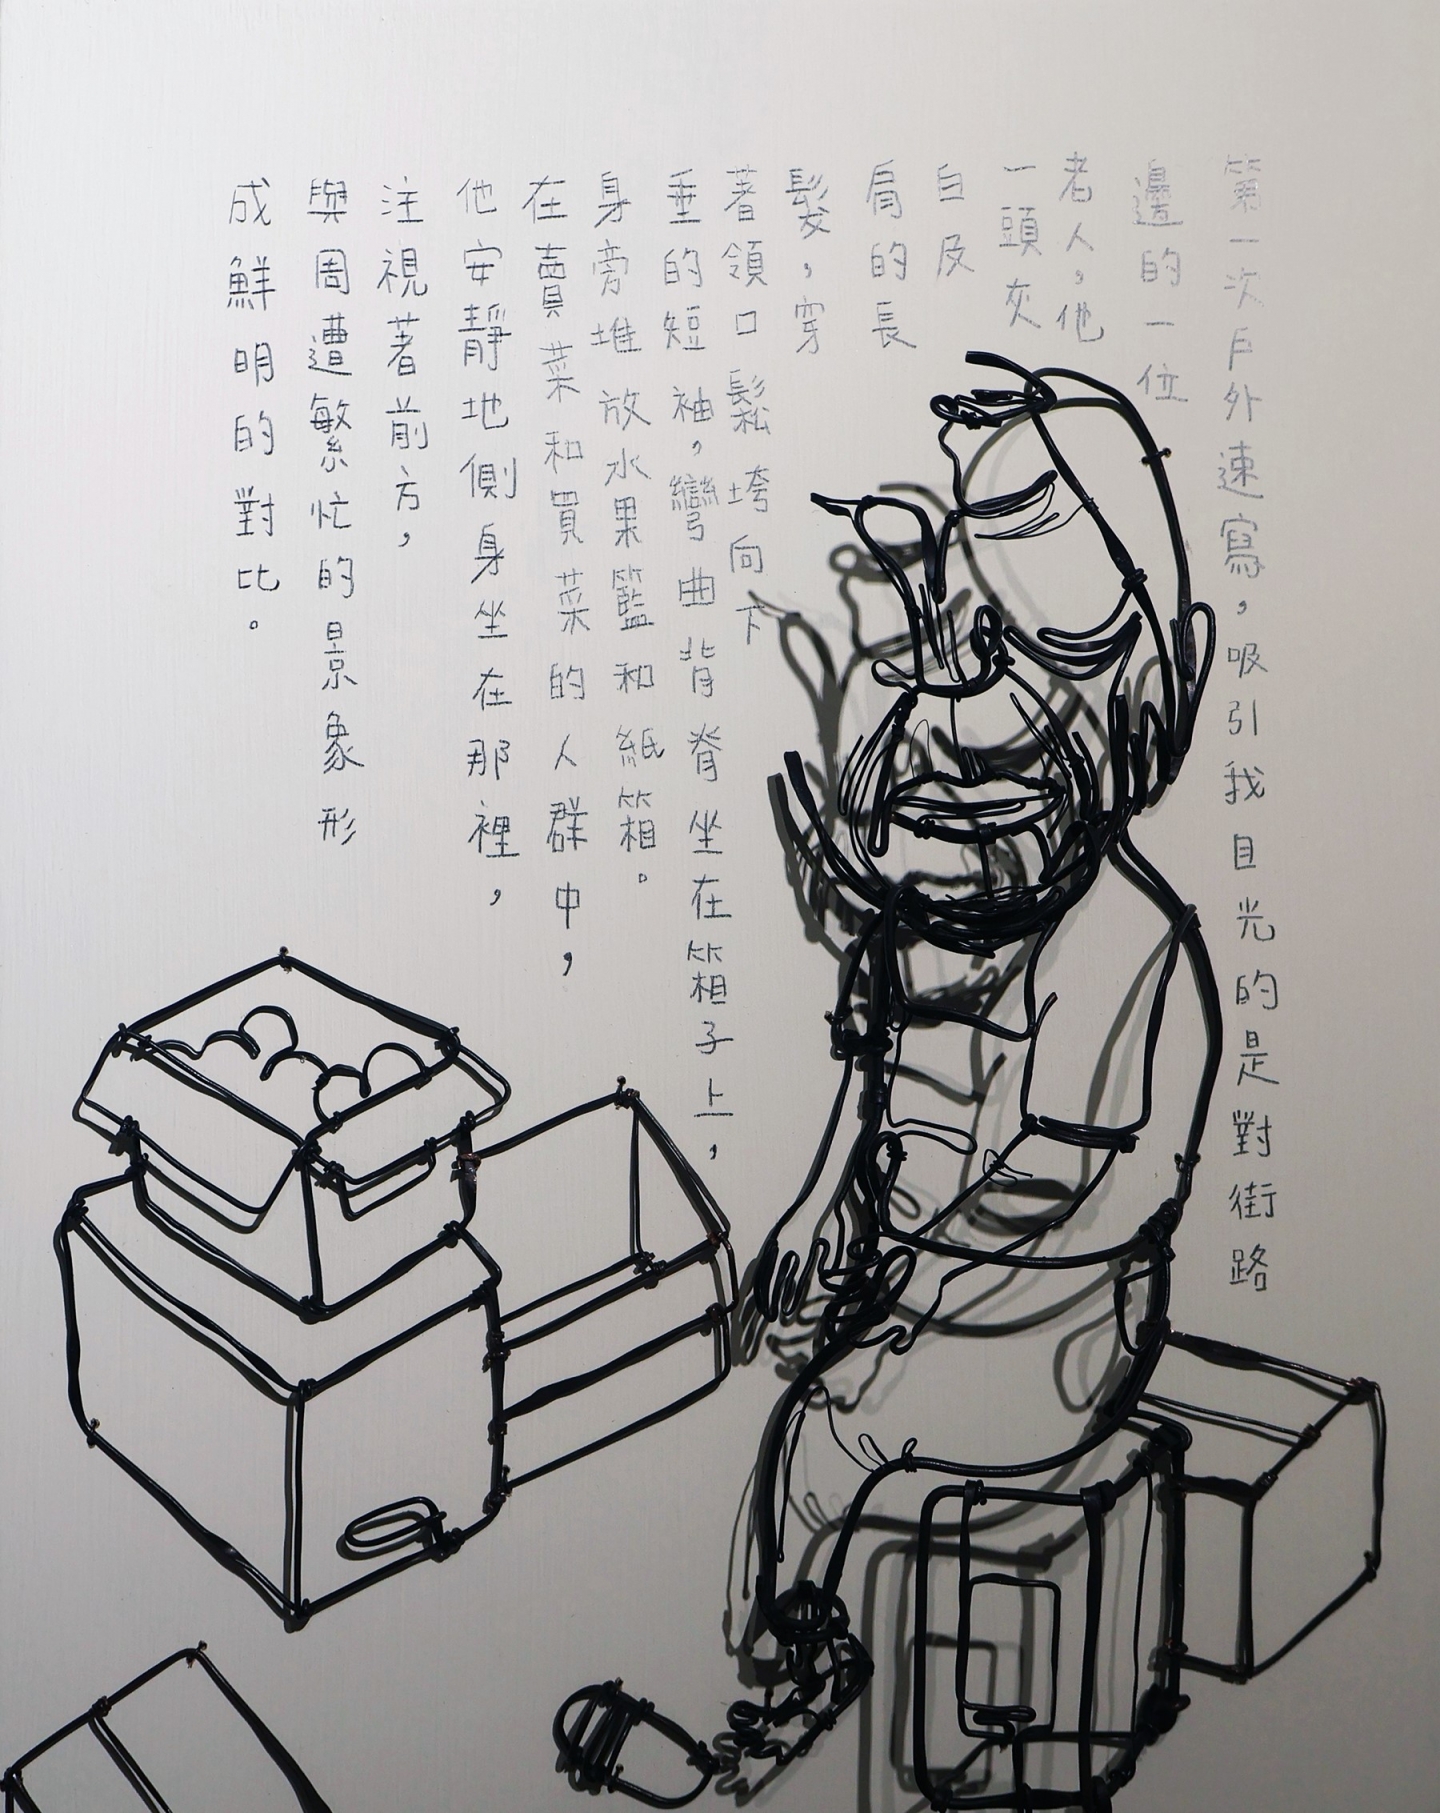 第一次戶外速寫，吸引我目光的是對街路
邊的一位
老人，他
一頭灰
白及
肩的長
髮，穿
著領口鬆垮向下
垂的短袖，彎曲背脊坐在箱子上，
身旁堆放水果籃和紙箱。
在賣菜和買菜的人群中，
他安靜地側身坐在那裡，
注視著前方，
與周遭繁忙的景象形
成鮮明的對比。